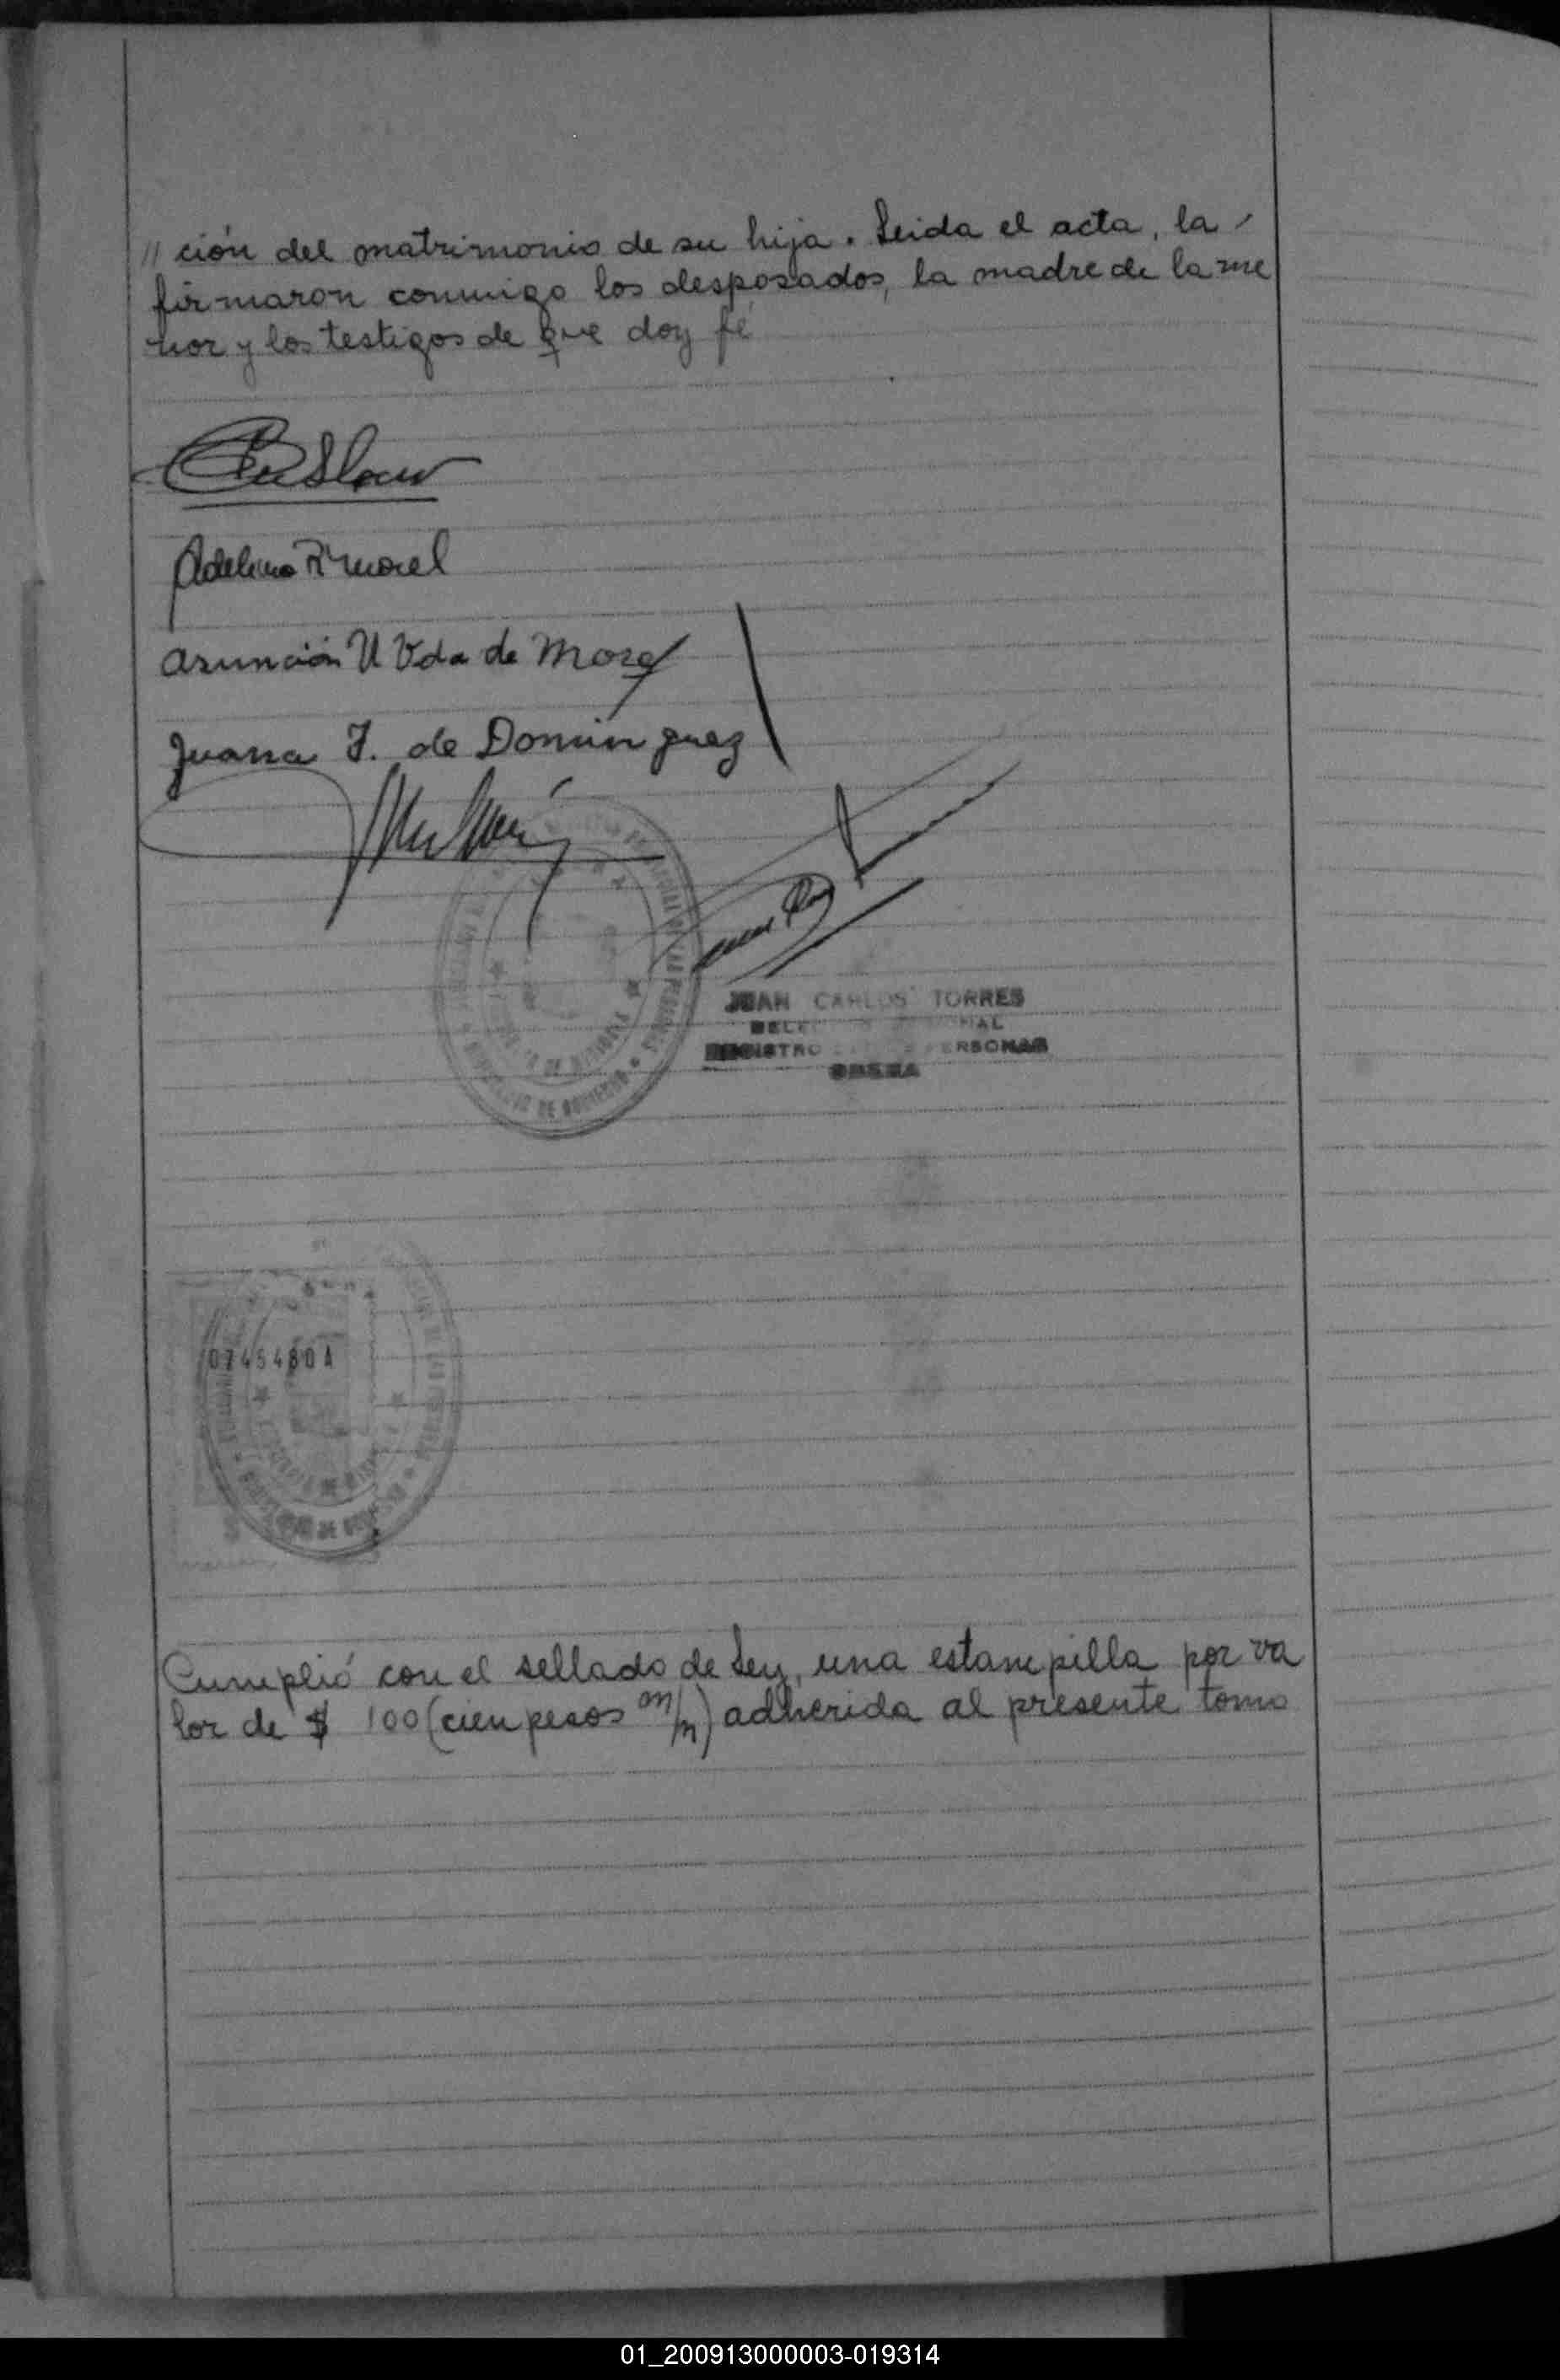 // ción del matrimonio de su hija. Leida el acta, la -
firmaron conmigo los desposados, la madre de la me
nor y los testigos de que doy fé
Adelina R Morel
Asunción U Vda de Morel
Juana F. de Domínguez
JUAN CARLOS TORRES
REGISTRO PERSONAS
OBERA
MINISTERIO DE GOBIERNO
0745480A
Cumplió con el sellado de Ley, una estampilla por va
lor de $ 100 (cien pesos m/n) adherida al presente tomo
01_200913000003-019314